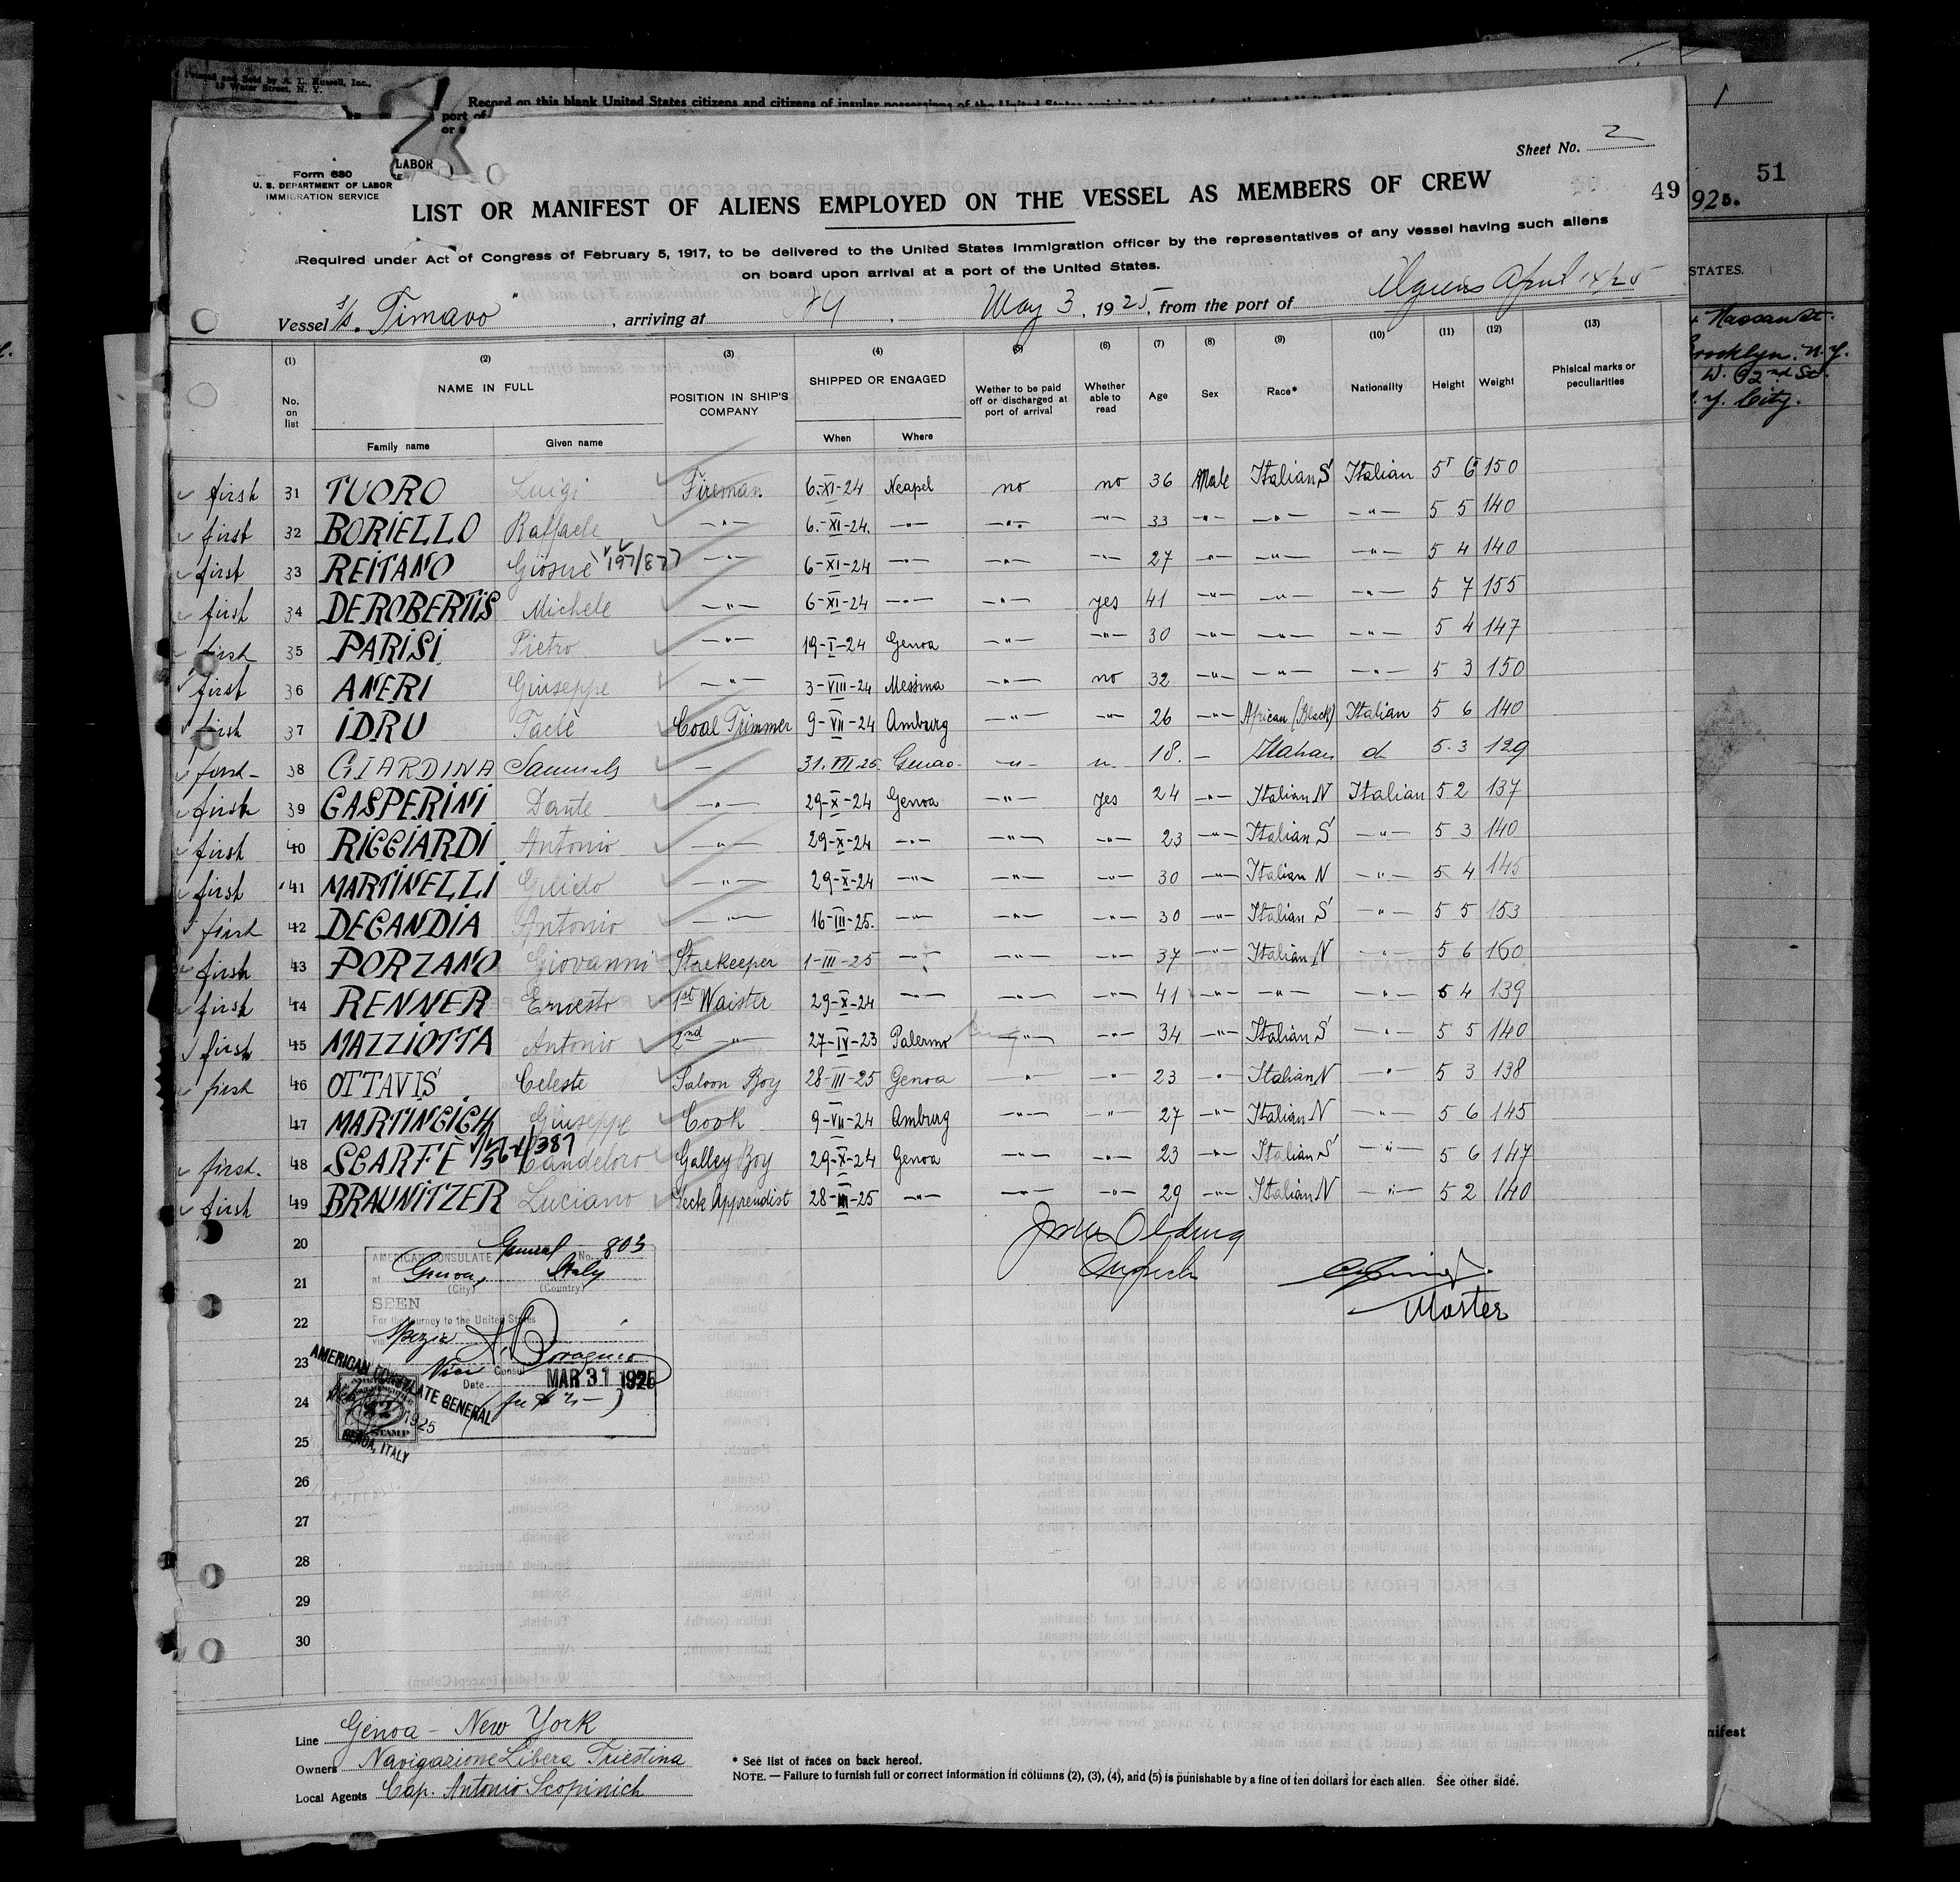 Printed and Sold by A. L. Russell, Inc.,
19 Water Street, N. Y.
Record on this blank United States citizens and citizens of insular possessions of the United States arriving
port of
or
1
LABOR
Sheet No. 2
Form 680
U. S. DEPARTMENT OF LABOR
IMMIGRATION SERVICE
49
51
925.
LIST OR MANIFEST OF ALIENS EMPLOYED ON THE VESSEL AS MEMBERS OF CREW
Required under Act of Congress of February 5, 1917, to be delivered to the United States Immigration officer by the representatives of any vessel having such aliens
on board upon arrival at a port of the United States.
STATES.
Vessel S/s. "Timavo", arriving at NY, May 3, 1925, from the port of April 14/25
Nassau St.
Brooklyn. N.Y.
W. 92nd St.
N.Y. City.
(1) (2) (3) (4) (5) (6) (7) (8) (9) (10) (11) (12) (13)
No. on list NAME IN FULL POSITION IN SHIP'S COMPANY SHIPPED OR ENGAGED Wether to be paid off or discharged at port of arrival Whether able to read Age Sex Race* Nationality Height Weight Phisical marks or peculiarities
Family name Given name When Where
first 31 TUORO Luigi Fireman 6-XI-24 Neapel no no 36 Male Italian S Italian 5' 6" 150
first 32 BORIELLO Raffaele —"— 6-XI-24. —"— —"— —"— 33 —"— —"— —"— 5 5 140
first 33 REITANO Giosue 197/877 —"— 6-XI-24 —"— —"— —"— 27 —"— —"— —"— 5 4 140
first 34 DEROBERTIS Michele —"— 6-XI-24 —"— —"— yes 41 —"— —"— —"— 5 7 155
first 35 PARISI Pietro —"— 19-I-24 Genoa —"— —"— 30 —"— —"— —"— 5 4 147
first 36 ANERI Giuseppe —"— 3-VIII-24 Messina —"— no 32 —"— —"— —"— 5 3 150
first 37 IDRU Taclè Coal Trimmer 9-VII-24 Amburg —"— —"— 26 —"— African (Black) Italian 5 6 140
first 38 GIARDINA Samuels — 31.III.25. Genao- —"— " 18. — Italian do 5.3 129
first 39 GASPERINI Dante —"— 29-X-24 Genoa —"— yes 24 —"— Italian N Italian 5 2 137
first 40 RICCIARDI Antonio —"— 29-X-24 —"— —"— —"— 23 —"— Italian S —"— 5 3 140
first 41 MARTINELLI Guido —"— 29-X-24 —"— —"— —"— 30 —"— Italian N —"— 5 4 145
first 42 DECANDIA Antonio —"— 16-III-25. —"— —"— —"— 30 —"— Italian S —"— 5 5 153
first 43 PORZANO Giovanni Storekeeper 1-III-25 —"— —"— —"— 37 —"— Italian N —"— 5 6 160
first 44 RENNER Ernesto 1st Waister 29-X-24 —"— —"— —"— 41 —"— —"— —"— 5 4 139
first 45 MAZZIOTTA Antonio 2nd —"— 27-IV-23 Palermo —"— —"— 34 —"— Italian S —"— 5 5 140
first 46 OTTAVIS Celeste Saloon Boy 28-III-25 Genoa " —"— 23 " Italian N —"— 5 3 138
47 MARTINCICH Giuseppe Cook 9-VII-24 Amburg —"— —"— 27 —"— Italian N —"— 5 6 145
first. 48 SCARFÈ 564/387 Candeloro Galley Boy 29-X-24 Genoa —"— —"— 23 —"— Italian S —"— 5 6 147
first 49 BRAUNITZER Luciano Deck Apprendist 28-III-25 —"— —"— —"— 29 —"— Italian N —"— 5 2 140
20
21
22
23
24
25
26
27
28
29
30
AMERICAN CONSULATE General No. 803
at Genoa, Italy
(City) (Country)
SEEN
For the journey to the United States
via Spezia
Vice Consul
Date MAR 31 1925
AMERICAN CONSULATE GENERAL
GENOA, ITALY
1925
STAMP
Master
Line Genoa - New York
Owners Navigazione Libera Triestina
Local Agents Cap. Antonio Scopinich
* See list of races on back hereof.
NOTE. — Failure to furnish full or correct information in columns (2), (3), (4), and (5) is punishable by a fine of ten dollars for each alien. See other side.
nifest